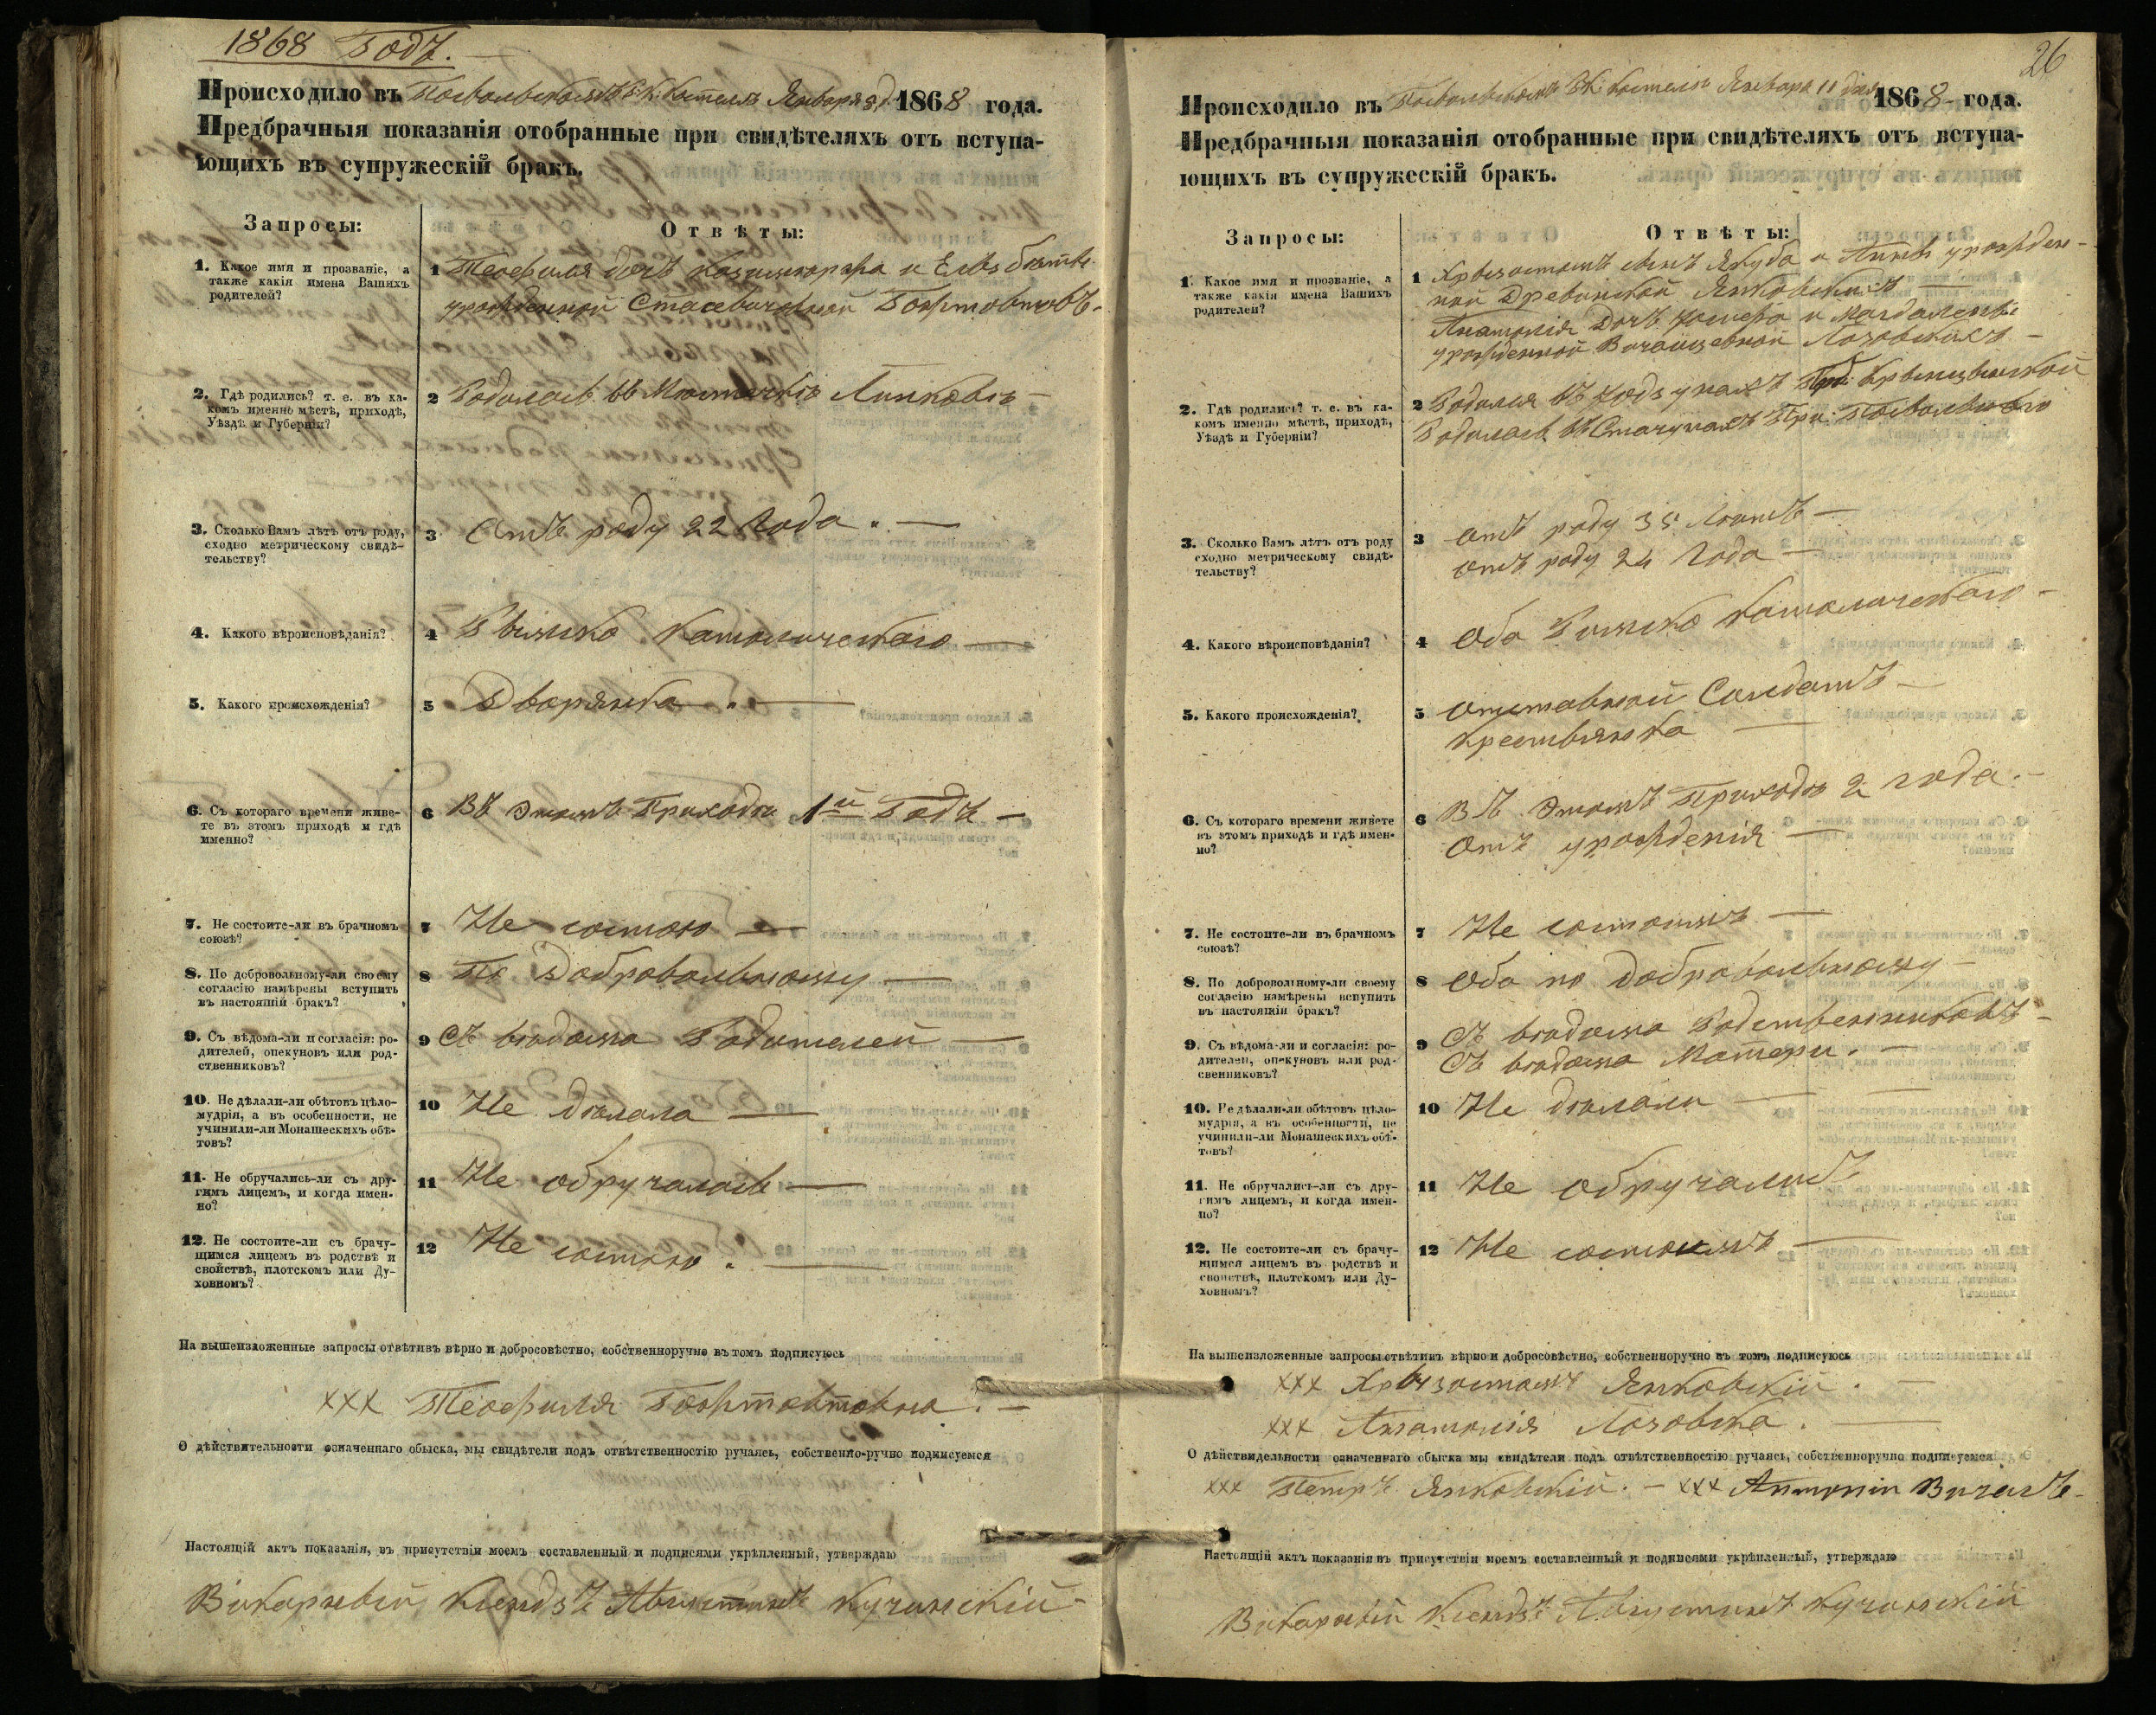 1868 Годъ.
Происходило въ Посвольскомъ Р. К. Костелѣ Января 8 д. 1868 года.
Предбрачныя показанія отобранные при свидѣтеляхъ отъ вступа-
ющихъ въ супружескій бракъ.
Запросы:
Отвѣты:
1. Какое имя и прозваніе, а
также какія имена Вашихъ
родителей?
1 Теофиля дочь Казимира и Ельзбѣты
урожденной Стасевичовной
2. Гдѣ родились? т. е. въ ка-
комъ именно мѣстѣ, приходѣ,
Уѣздѣ и Губерніи?
2 Родилась въ Мѣстечкѣ Линковѣ —
3. Сколько Вамъ лѣтъ отъ роду,
сходно метрическому свидѣ-
тельству?
3 Отъ роду 22 Года. —
4. Какого вѣроисповѣданія?
4 Рымско Католическаго —
5. Какого происхожденія?
5 Дворянка. —
6. Съ котораго времени живе-
те въ этомъ приходѣ и гдѣ
именно?
6 Въ этомъ Приходѣ 1й Годъ —
7. Не состоите-ли въ брачномъ
союзѣ?
7 Не состою —
8. По добровольному-ли своему
согласію намѣрены вступить
въ настоящій бракъ?
8 По Добровольному —
9. Съ вѣдома-ли и согласія: ро-
дителей, опекуновъ или род-
ственниковъ?
9 Съ вѣдома Родителей —
10. Не дѣлали-ли обѣтовъ цѣло-
мудрія, а въ особенности, не
учинили-ли Монашескихъ обѣ-
товъ?
10 Не дѣлала —
11. Не обручались-ли съ дру-
гимъ лицемъ, и когда имен-
но?
11 Не обручалась —
12. Не состоите-ли съ брачу-
щимся лицемъ въ родствѣ и
свойствѣ, плотскомъ или Ду-
ховномъ?
12 Не состою. —
На вышеизложенные запросы отвѣтивъ вѣрно и добросовѣстно, собственноручно въ томъ подписуюсь
ххх Теофиля
О дѣйствительности означеннаго обыска, мы свидѣтели подъ отвѣтственностію ручаясь, собственно-ручно подписуемся
Настоящій актъ показанія, въ присутствіи моемъ составленный и подписями укрѣпленный, утверждаю
Викарный Ксендзъ Августинъ Кучинскій
26
Происходило въ Посвольскомъ Р. К. Костелѣ Января 11 дня 1868 года.
Предбрачныя показанія отобранные при свидѣтеляхъ отъ вступа-
ющихъ въ супружескій бракъ.
Запросы:
Отвѣты:
1. Какое имя и прозваніе, а
также какія имена Вашихъ
родителей?
1 Хрызостомъ сынъ Якуба и Анны урожден-
ной Древинской Янковскихъ —
Анатолія Дочь и Магдалены
урожденной Лозовскихъ —
2. Гдѣ родились? т. е. въ ка-
комъ именно мѣстѣ, приходѣ,
Уѣздѣ и Губерніи?
2 Родился въ
Родилась въ Стачунахъ При. Посвольскаго
3. Сколько Вамъ лѣтъ отъ роду
сходно метрическому свидѣ-
тельству?
3 Отъ роду 35 Лѣтъ —
Отъ роду 24 Года —
4. Какого вѣроисповѣданія?
4 Оба Римско Католическаго —
5. Какого происхожденія?
5 Отставной Солдатъ —
Крестьянка —
6. Съ котораго времени живете
въ этомъ приходѣ и гдѣ имен-
но?
6 Въ этомъ Приходѣ 2 года. —
Отъ урожденія —
7. Не состоите-ли въ брачномъ
союзѣ?
7 Не состоимъ —
8. По добровольному-ли своему
согласію намѣрены вступить
въ настоящій бракъ?
8 Оба по добровольному —
9. Съ вѣдома-ли и согласія: ро-
дителей, опекуновъ или род-
свенниковъ?
9 Съ вѣдома Родственниковъ —
Съ вѣдома Матери. —
10. Не дѣлали-ли обѣтовъ цѣло-
мудрія, а въ особенности, не
учинили-ли Монашескихъ обѣ-
товъ?
10 Не дѣлали —
11. Не обручались-ли съ дру-
гимъ лицемъ, и когда имен-
но?
11 Не обручались
12. Не состоите-ли съ брачу-
щимся лицемъ въ родствѣ и
свойствѣ, плотскомъ или Ду-
ховномъ?
12 Не состоимъ —
На вышеизложенные запросы отвѣтивъ вѣрно и добросовѣстно, собственноручно въ томъ подписуюсь
ххх Хрызостомъ Янковскій. —
ххх Анатолія Лозовска. —
О дѣйствидельности означеннаго обыска мы свидѣтели подъ отвѣтственностію ручаясь, собственноручно подписуемся
ххх Петръ Янковскій. — ххх
Настоящій актъ показанія въ присутствіи моемъ составленный и подписями укрѣпленный, утверждаю
Викарный Ксендзъ Августинъ Кучинскій